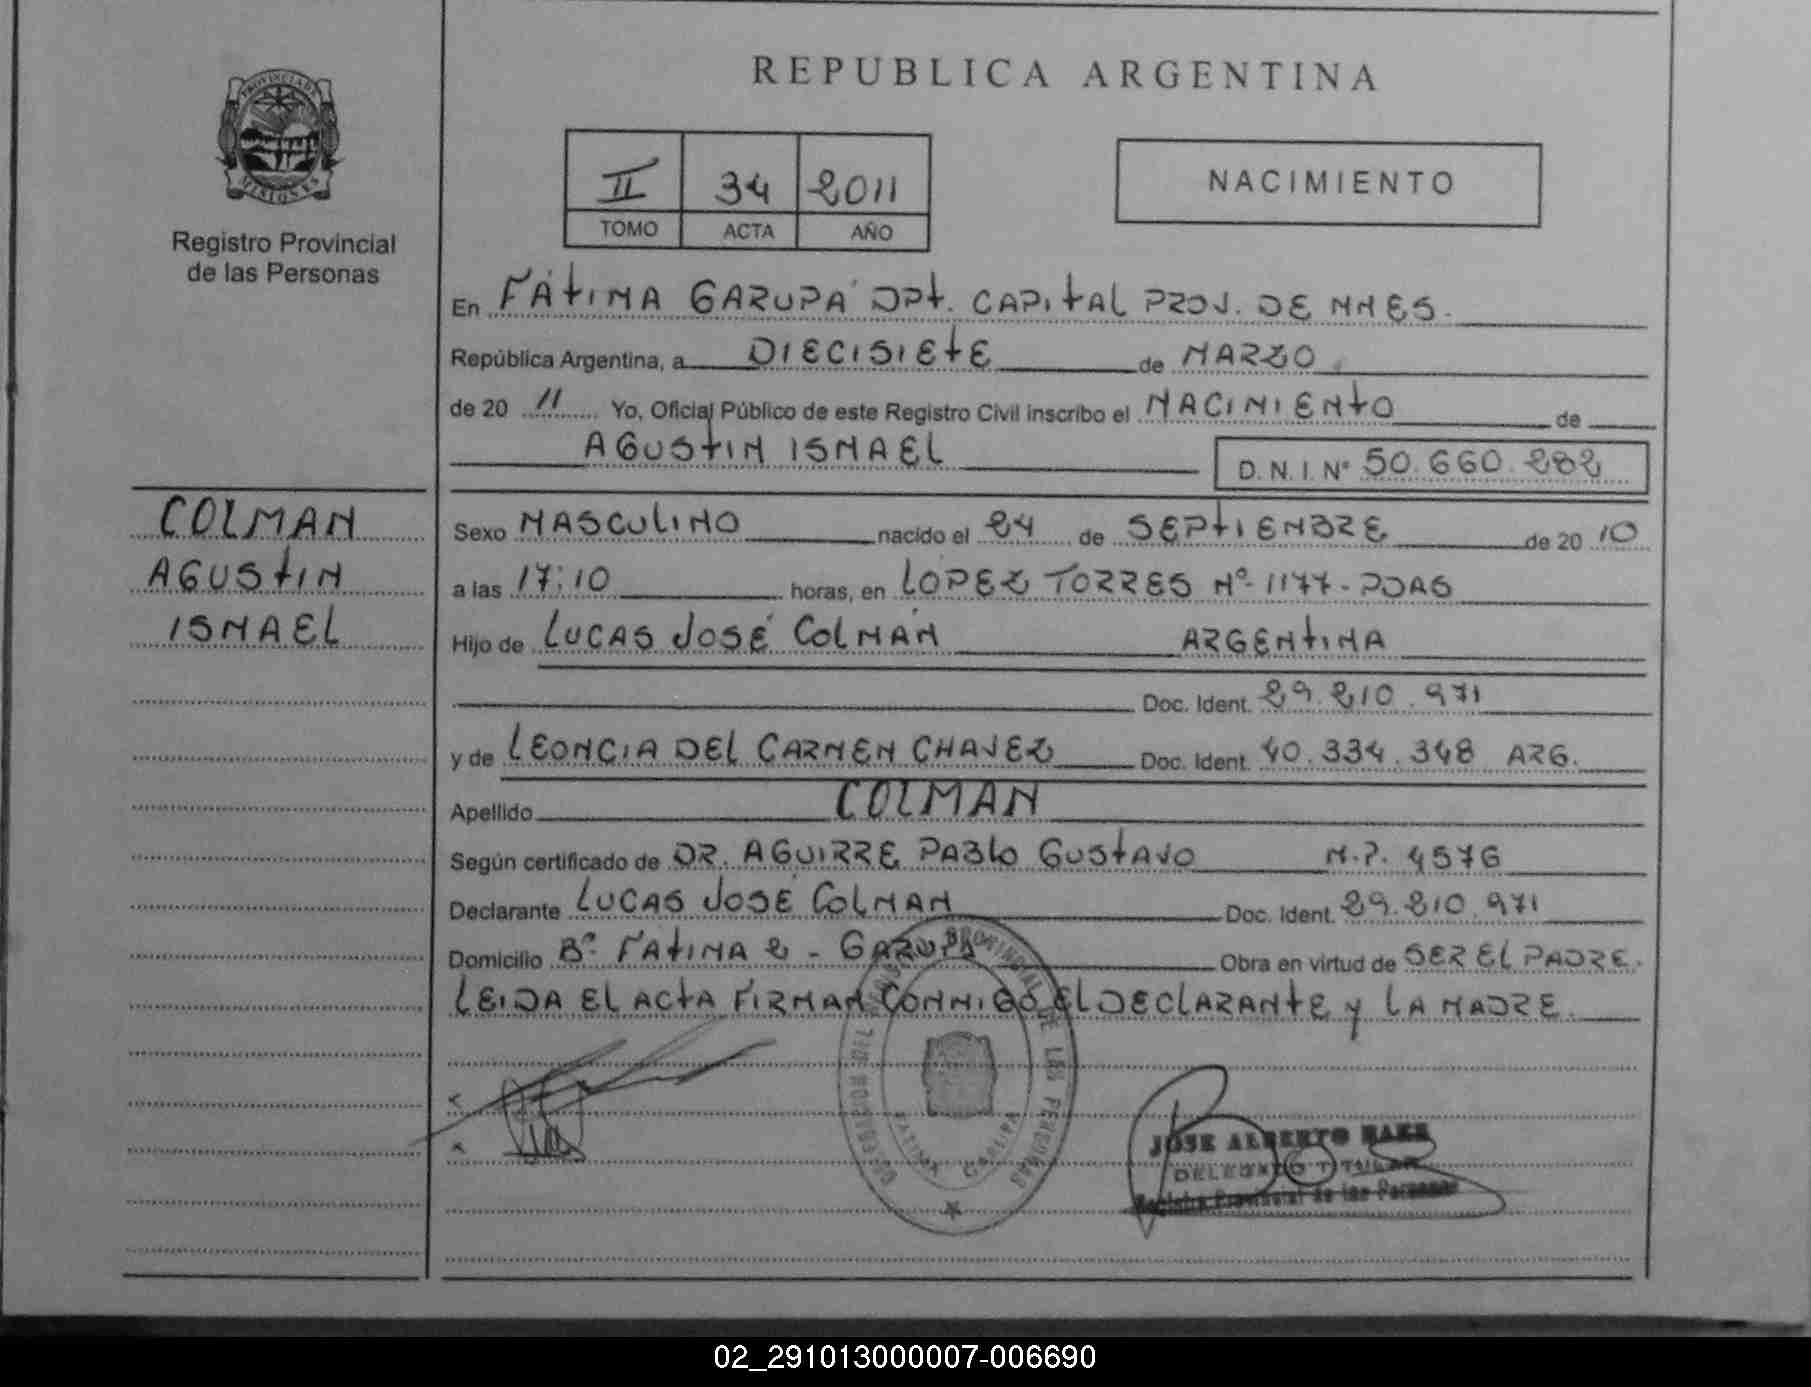 REPUBLICA ARGENTINA
PROVINCIA DE
MISIONES
Registro Provincial
de las Personas
II 34 2011
TOMO ACTA AÑO
NACIMIENTO
En FÁTIMA GARUPÁ DPT. CAPITAL PROV. DE MNES.
República Argentina, a DIECISIETE de MARZO
de 20 11 Yo, Oficial Público de este Registro Civil inscribo el NACIMIENTO de
AGUSTIN ISMAEL D. N. I. Nº 50.660.282
COLMAN
AGUSTIN
ISMAEL
Sexo MASCULINO nacido el 24 de SEPTIEMBRE de 20 10
a las 17:10 horas, en LOPEZ TORRES Nº 1177 - PDAS
Hijo de LUCAS JOSÉ COLMAN ARGENTINA
Doc. Ident. 29.210.971
y de LEONCIA DEL CARMEN CHAVEZ Doc. Ident. 40.334.348 ARG.
Apellido COLMAN
Según certificado de DR. AGUIRRE PABLO GUSTAVO M.P. 4576
Declarante LUCAS JOSÉ COLMAN Doc. Ident. 29.210.971
Domicilio Bº FATIMA 2 - GARUPÁ Obra en virtud de SER EL PADRE.
LEIDA EL ACTA FIRMAN CONMIGO EL DECLARANTE y LA MADRE.
PROVINCIAL DE LAS PERSONAS
FATIMA GARUPA
JOSE ALBERTO
DELEGADO TITULAR
Registro Provincial de las Personas
02_291013000007-006690